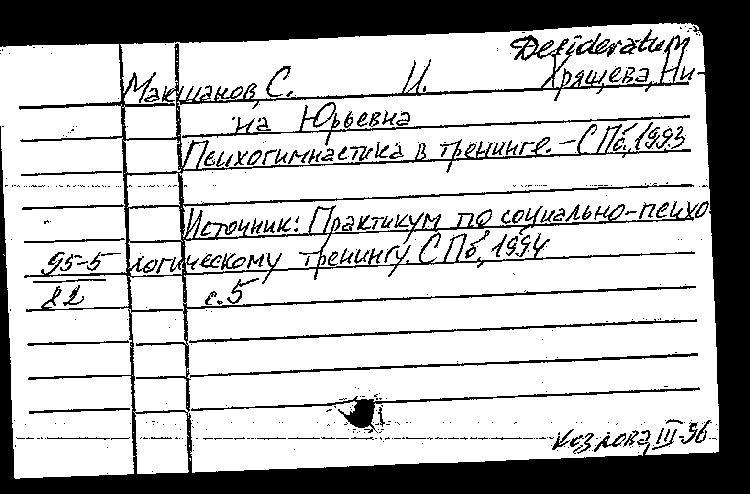 Desideratum
Макшанов, С. И. Хрящева, Ни-
на Юрьевна
Психогимнастика в тренинге. - СПб, 1993
Источник: Практикум по социально-психо
95-5 логическому тренингу. СПб, 1994
82 с. 5
Козлова, III-96